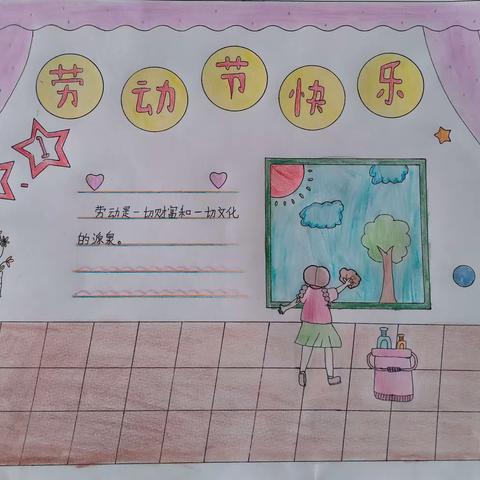 劳动节快乐
1
劳动是一切财富和一切文化
的源泉。